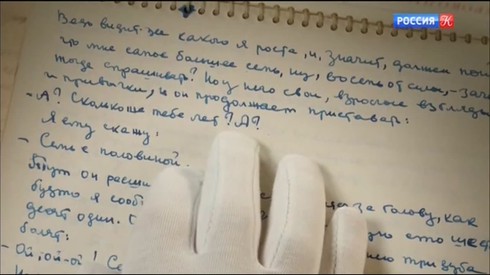 РОССИЯ К
Ведь видит же какого я роста, и, значит, должен пон
что мне самое большее семь, ну, восемь от силы, - зачем
тогда спрашивать? Но у него свои, взрослые взгляды
и привычки, и он продолжает приставать:
- А? Сколько же тебе лет? А?
Я ему скажу:
- Семь с половиной.
Тут он расши за голову, как
будто я сооб сто шест
десят один. (
болят:
- Ой-ой-ой! Се три зуба